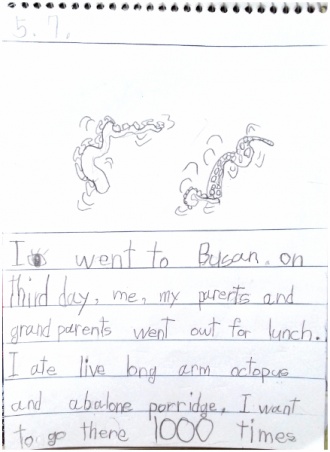 5. 7.
I went to Busan. on
third day, me, my parents and
grandparents went out for lunch.
I ate live long arm octopus
and abalone porridge. I want
to go there 1000 times